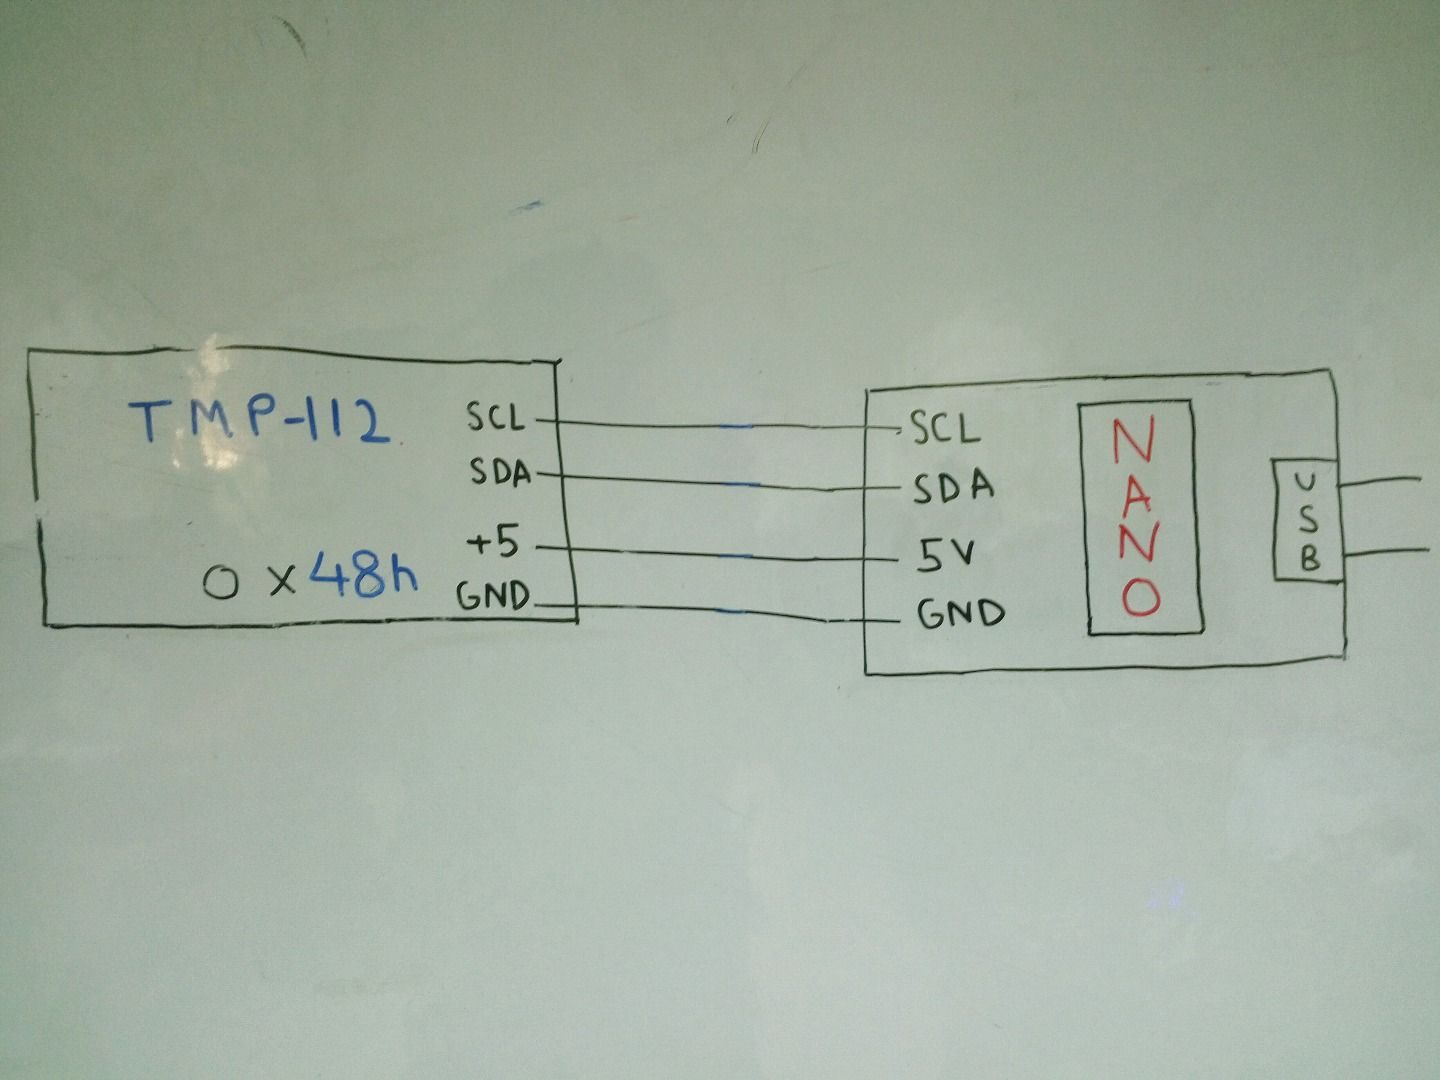 TMP-112
SCL
SDA
+5
0x48h
GND
SCL
SDA
5V
GND
NANO
USB